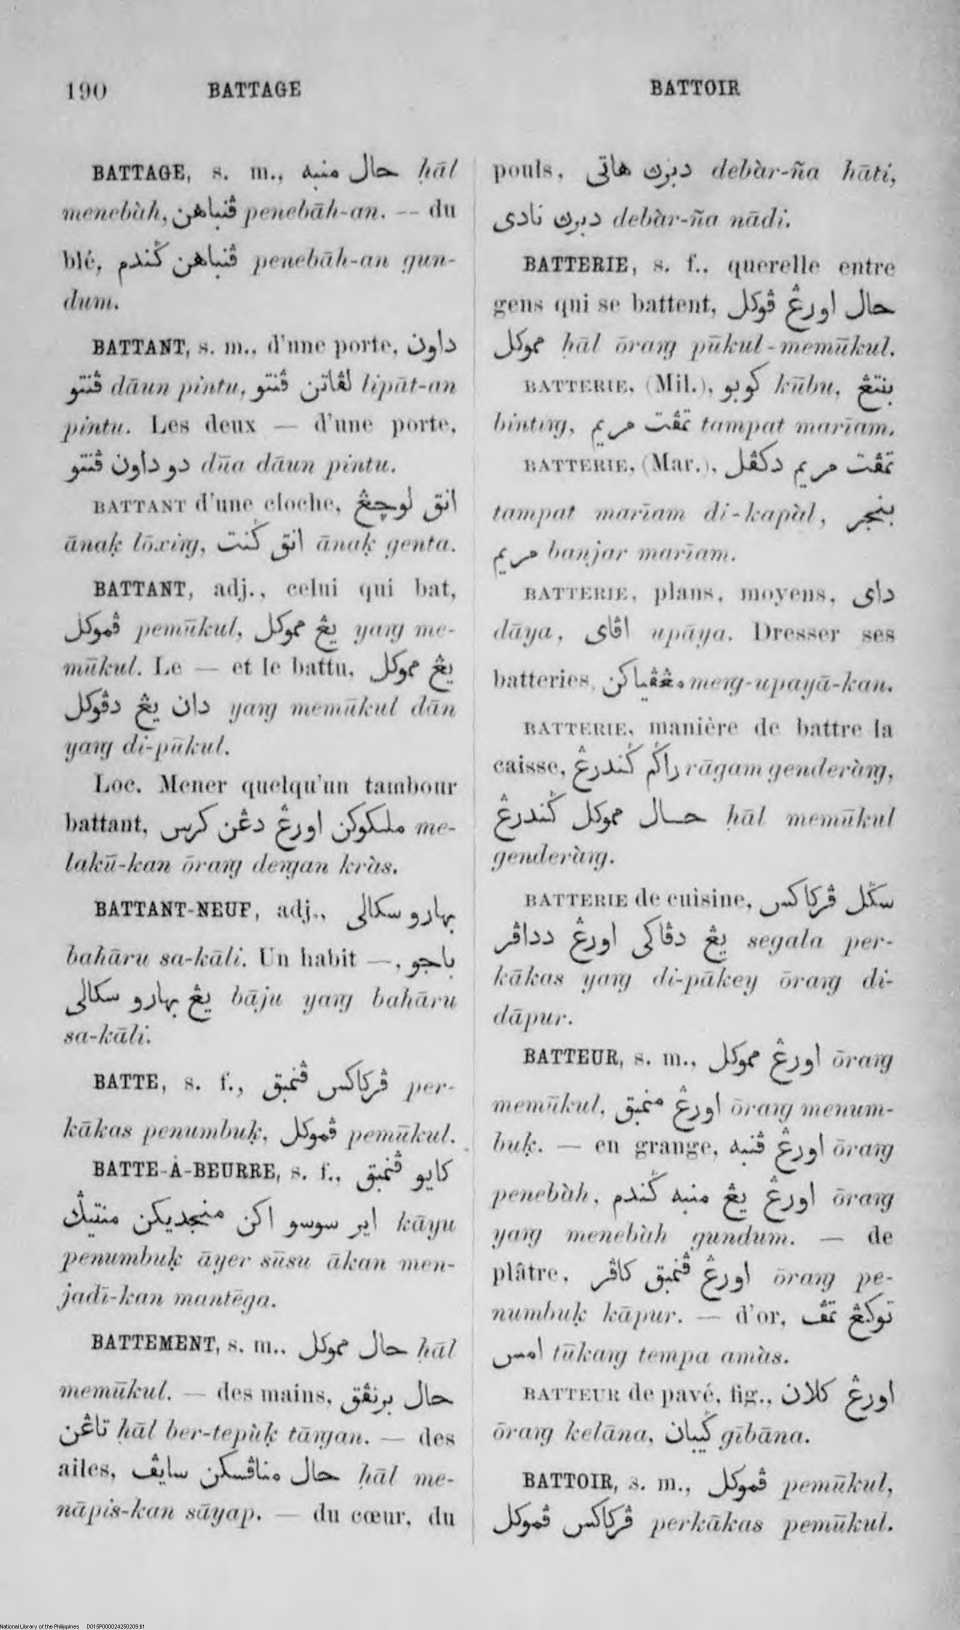 190 BATTAGE BATTOIR
BATTAGE, s. m., حال منبه ḥāl
menebàh, ڤنباهن penebāh-an. — du
blé, ڤنباهن ݢندم penebāh-an gun-
dum.
BATTANT, s. m., d'une porte, داون
ڤنتو dāun pintu, لڤاتن ڤنتو lipāt-an
pintu. Les deux — d'une porte,
دو داون ڤنتو dūa dāun pintu.
BATTANT d'une cloche, انق لوچڠ
ānaḳ lōxiŋ, انق ݢنت ānaḳ genta.
BATTANT, adj., celui qui bat,
ڤموكل pemūkul, يڠ مموكل yaŋ me-
mūkul. Le — et le battu, يڠ مموكل
دان يڠ دڤوكل yaŋ memūkul dān
yaŋ di-pūkul.
Loc. Mener quelqu'un tambour
battant, ملكوكن اورڠ دڠن كرس me-
lakū-kan ōraŋ deŋan kràs.
BATTANT-NEUF, adj., بهارو سكالي
bahāru sa-kāli. Un habit —, باجو
يڠ بهارو سكالي bāju yaŋ bahāru
sa-kāli.
BATTE, s. f., ڤركاكس ڤنمبق per-
kākas penumbuḳ, ڤموكل pemūkul.
BATTE-À-BEURRE, s. f., كايو ڤنمبق
اير سوسو اكن منجديكن منتيݢ kāyu
penumbuḳ āyer sūsu ākan men-
jadī-kan mantēga.
BATTEMENT, s. m., حال مموكل ḥāl
memūkul. — des mains, حال برتڤق
تاڠن ḥāl ber-tepùḳ tāŋan. — des
ailes, حال مناڤسكن سايڤ ḥāl me-
nāpis-kan sāyap. — du cœur, du
pouls, دبرڽ هاتي debàr-ña hāti,
دبرڽ نادي debàr-ña nādi.
BATTERIE, s. f., querelle entre
gens qui se battent, حال اورڠ ڤوكل
مموكل ḥāl ōraŋ pūkul-memūkul.
BATTERIE, (Mil.), كوبو kūbu, بنتڠ
bintiŋ, تمڤت مريم tampat marīam.
BATTERIE, (Mar.), تمڤت مريم دكڤل
tampat marīam di-kapàl, بنجر
مريم banjar marīam.
BATTERIE, plans, moyens, داي
dāya, اڤاي upāya. Dresser ses
batteries, مڠڤياكن meŋ-upayā-kan.
BATTERIE, manière de battre la
caisse, راݢم ݢندرڠ rāgam genderàŋ,
حال مموكل ݢندرڠ ḥāl memūkul
genderàŋ.
BATTERIE de cuisine, سݢل ڤركاكس
يڠ دڤاكي اورڠ دداڤر segala per-
kākas yaŋ di-pākey ōraŋ di-
dāpur.
BATTEUR, s. m., اورڠ مموكل ōraŋ
memūkul, اورڠ منمبق ōraŋ menum-
buḳ. — en grange, اورڠ ڤنبه ōraŋ
penebàh, اورڠ يڠ منبه ݢندم ōraŋ
yaŋ menebàh gundum. — de
plâtre, اورڠ ڤنمبق كاڤر ōraŋ pe-
numbuḳ kāpur. — d'or, توكڠ تمڤ
امس tūkaŋ tempa amàs.
BATTEUR de pavé, fig., اورڠ كلان
ōraŋ kelāna, ݢيبان gībāna.
BATTOIR, s. m., ڤموكل pemūkul,
ڤركاكس ڤموكل perkākas pemūkul.
National Library of the Philippines